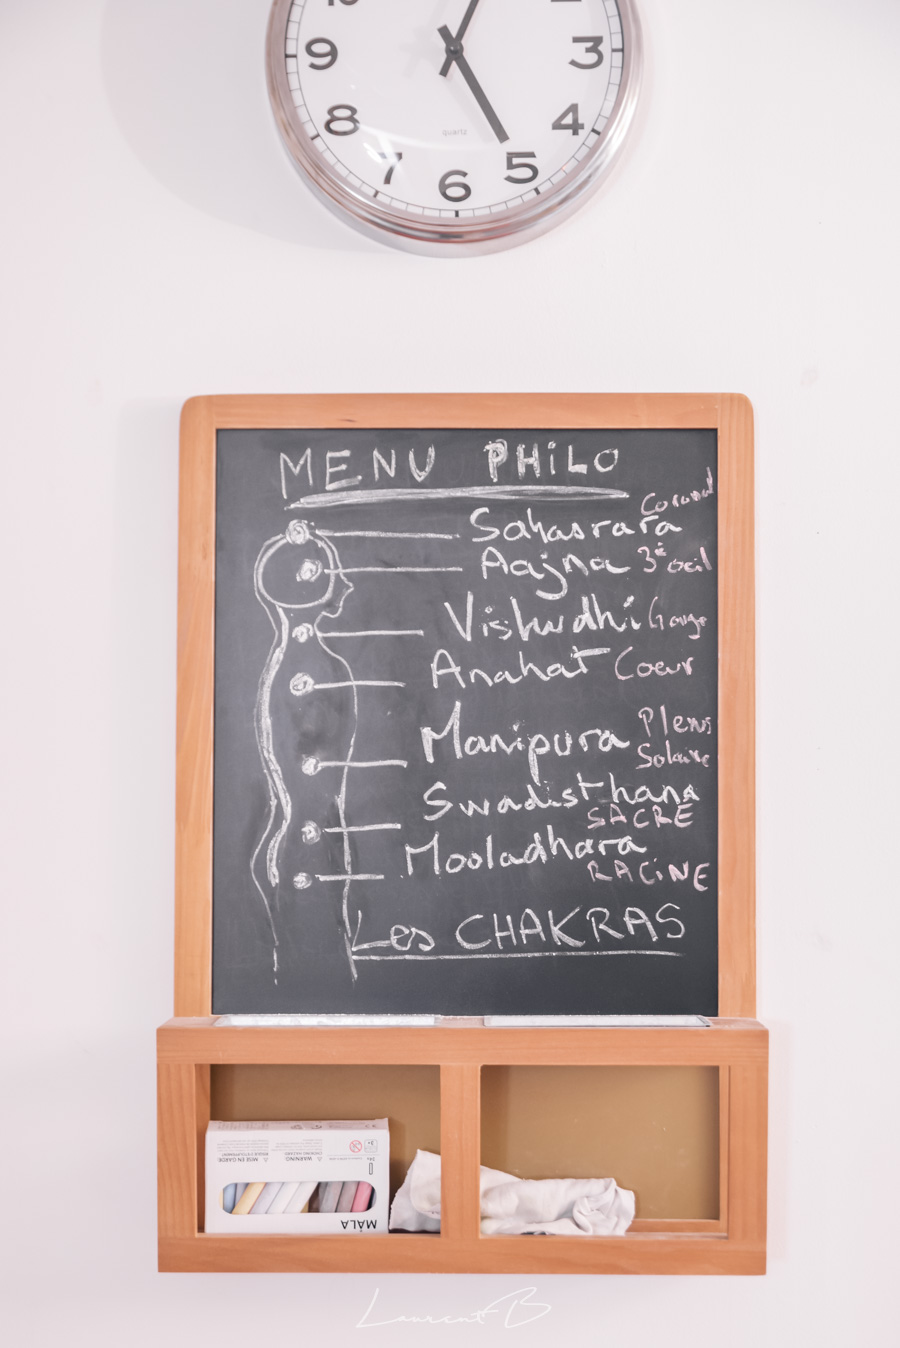 10
9
3
8
4
quartz
7
5
6
MENU PHILO
Coronal
Sahasrara
Aajna 3è œil
Vishudhi Gorge
Anahat Coeur
Manipura Plexus
Solaire
Swadisthana
SACRE
Mooladhara
RACINE
Les CHAKRAS
WARNING:
MISE EN GARDE:
MÅLA
Laurent B